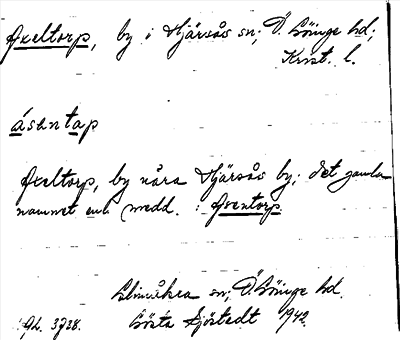 Axeltorp, by i Hjärsås sn; Ö. Göinge hd;
Krist. l.
ásəntap
Axeltorp, by nära Hjärsås by; det gamla
namnet enl. medd. : Asentorp
Glimåkra sn, Ö. Göinge hd.
Gösta Sjöstedt 1942.
Gh. 3728.